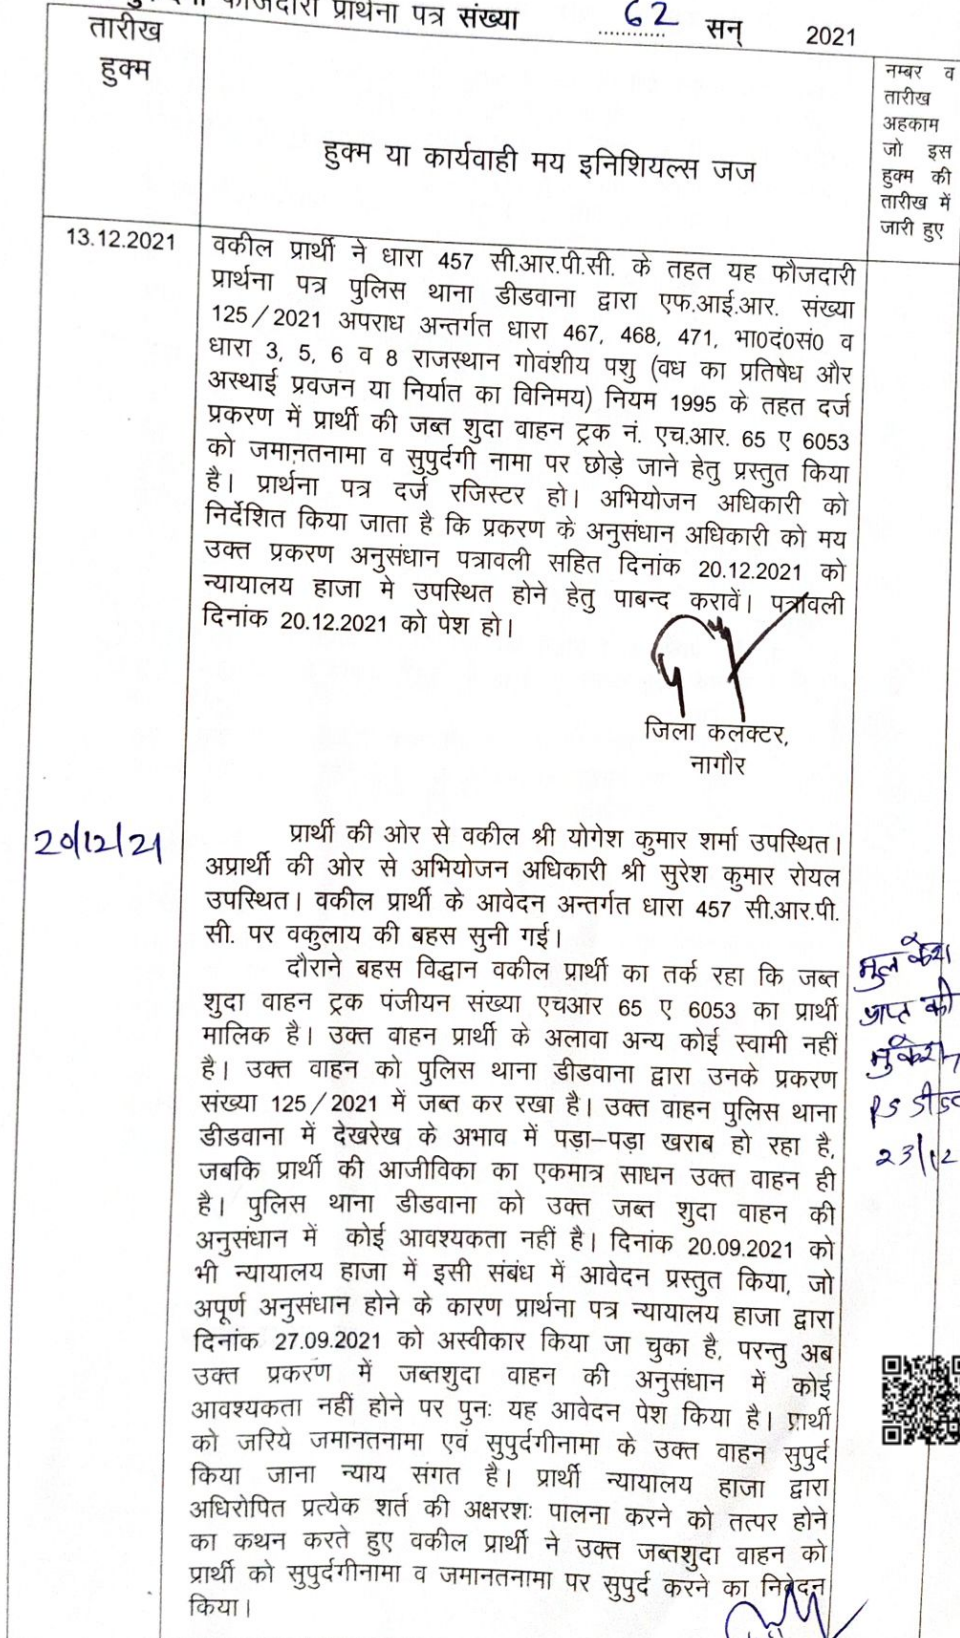 फौजदारी प्रार्थना पत्र संख्या 62 सन् 2021
तारीख
हुक्म
हुक्म या कार्यवाही मय इनिशियल्स जज
नम्बर व
तारीख
अहकाम
जो इस
हुक्म की
तारीख में
जारी हुए
13.12.2021
वकील प्रार्थी ने धारा 457 सी.आर.पी.सी. के तहत यह फौजदारी
प्रार्थना पत्र पुलिस थाना डीडवाना द्वारा एफ.आई.आर. संख्या
125/2021 अपराध अन्तर्गत धारा 467, 468, 471, भा0दं0सं0 व
धारा 3, 5, 6 व 8 राजस्थान गोवंशीय पशु (वध का प्रतिषेध और
अस्थाई प्रवजन या निर्यात का विनिमय) नियम 1995 के तहत दर्ज
प्रकरण में प्रार्थी की जब्त शुदा वाहन ट्रक नं. एच.आर. 65 ए 6053
को जमानतनामा व सुपुर्दगी नामा पर छोड़े जाने हेतु प्रस्तुत किया
है। प्रार्थना पत्र दर्ज रजिस्टर हो। अभियोजन अधिकारी को
निर्देशित किया जाता है कि प्रकरण के अनुसंधान अधिकारी को मय
उक्त प्रकरण अनुसंधान पत्रावली सहित दिनांक 20.12.2021 को
न्यायालय हाजा मे उपस्थित होने हेतु पाबन्द करावें। पत्रावली
दिनांक 20.12.2021 को पेश हो।
जिला कलक्टर,
नागौर
20/12/21
प्रार्थी की ओर से वकील श्री योगेश कुमार शर्मा उपस्थित।
अप्रार्थी की ओर से अभियोजन अधिकारी श्री सुरेश कुमार रोयल
उपस्थित। वकील प्रार्थी के आवेदन अन्तर्गत धारा 457 सी.आर.पी.
सी. पर वकुलाय की बहस सुनी गई।
दौराने बहस विद्वान वकील प्रार्थी का तर्क रहा कि जब्त
शुदा वाहन ट्रक पंजीयन संख्या एचआर 65 ए 6053 का प्रार्थी
मालिक है। उक्त वाहन प्रार्थी के अलावा अन्य कोई स्वामी नहीं
है। उक्त वाहन को पुलिस थाना डीडवाना द्वारा उनके प्रकरण
संख्या 125/2021 में जब्त कर रखा है। उक्त वाहन पुलिस थाना
डीडवाना में देखरेख के अभाव में पड़ा–पड़ा खराब हो रहा है,
जबकि प्रार्थी की आजीविका का एकमात्र साधन उक्त वाहन ही
है। पुलिस थाना डीडवाना को उक्त जब्त शुदा वाहन की
अनुसंधान में कोई आवश्यकता नहीं है। दिनांक 20.09.2021 को
भी न्यायालय हाजा में इसी संबंध में आवेदन प्रस्तुत किया, जो
अपूर्ण अनुसंधान होने के कारण प्रार्थना पत्र न्यायालय हाजा द्वारा
दिनांक 27.09.2021 को अस्वीकार किया जा चुका है, परन्तु अब
उक्त प्रकरण में जब्तशुदा वाहन की अनुसंधान में कोई
आवश्यकता नहीं होने पर पुनः यह आवेदन पेश किया है। प्रार्थी
को जरिये जमानतनामा एवं सुपुर्दगीनामा के उक्त वाहन सुपुर्द
किया जाना न्याय संगत है। प्रार्थी न्यायालय हाजा द्वारा
अधिरोपित प्रत्येक शर्त की अक्षरशः पालना करने को तत्पर होने
का कथन करते हुए वकील प्रार्थी ने उक्त जब्तशुदा वाहन को
प्रार्थी को सुपुर्दगीनामा व जमानतनामा पर सुपुर्द करने का निवेदन
किया।
प्राप्त की
PS
23/12